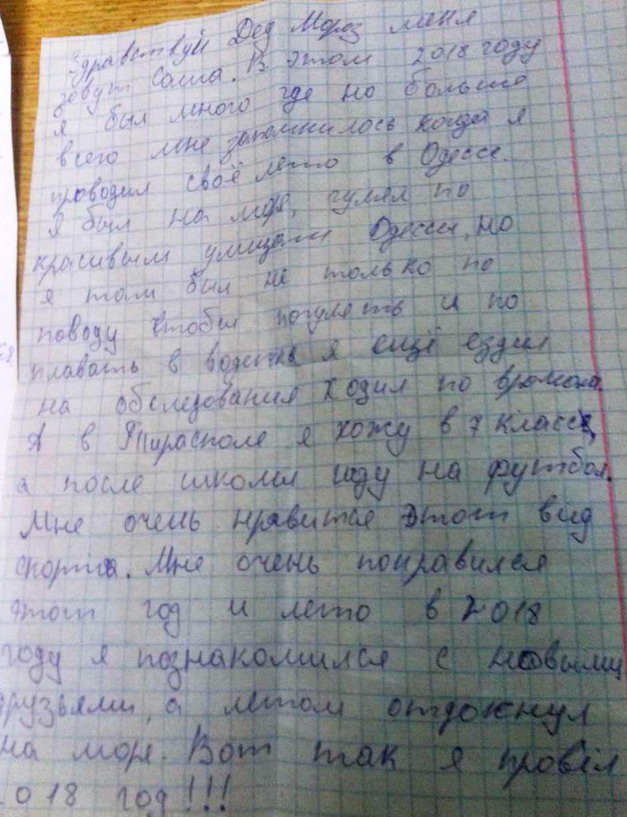 Здравствуй Дед Мороз меня
зовут Саша. В этом 2018 году
я был много где но больше
всего мне запомнилось когда я
проводил своё лето в Одессе.
Я был на море, гулял по
красивым улицам Одессы, но
я там был не только по
поводу чтобы погулять и по
плавать в водичке я ещё ездил
на обследования ходил по врачам.
А в Тирасполе я хожу в 7 класс,
а после школы иду на футбол.
Мне очень нравится этот вид
спорта. Мне очень понравился
этот год и лето в 2018
году я познакомился с новыми
друзьями, а летом отдохнул
на море. Вот так я провёл
2018 год!!!